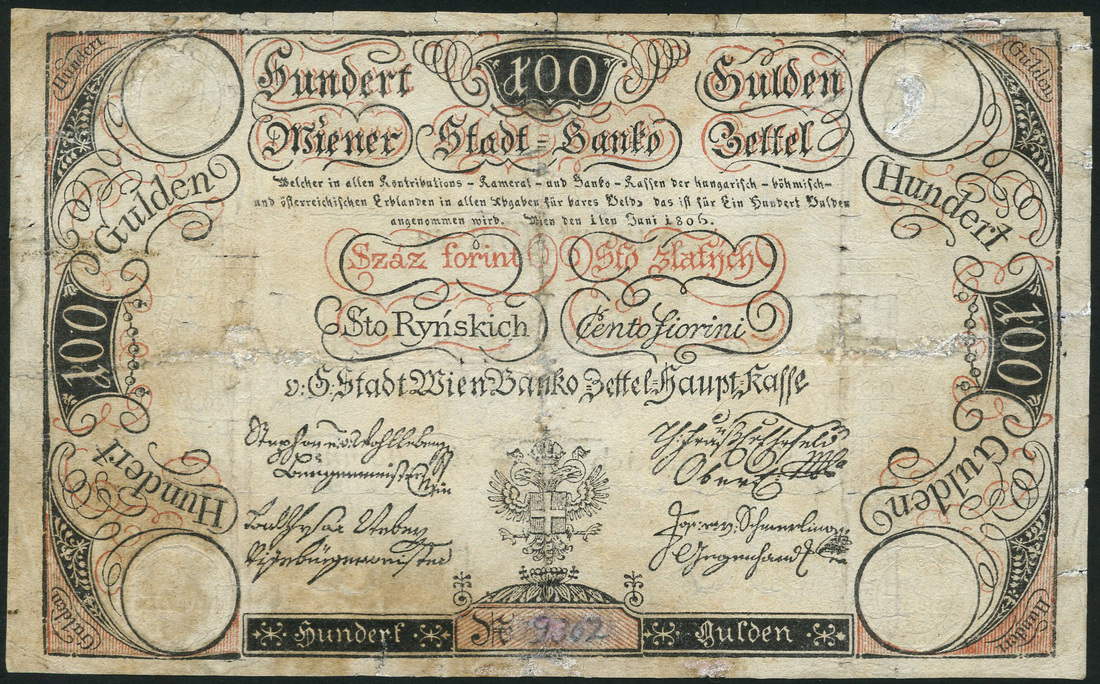 Hundert 100 Gulden
Wiener Stadt=Banko Zettel
Welcher in allen Kontributions-Kameral-und Banko-Kassen der hungarisch-böhmisch-
und österreichischen Erblanden in allen Abgaben für bares Geld, das ist für Ein Hundert Gulden
angenommen wird. Wien den 1ten Juni 1806.
Száz forint Sto zlatých
Sto Ryńskich Cento fiorini
v: G: Stadt Wien Banko=Zettel=Haupt=Kasse
Bürgermeister
Wien
Vizebürgermeister
Schmerling
Hundert № 9362 Gulden
Hundert
Gulden
100
Hundert
Gulden
Gulden
Hundert
100
Gulden
Hundert